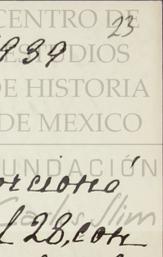 CENTRO DE
23
1939
ESTUDIOS
DE HISTORIA
DE MEXICO
FUNDACIÓN
Carlos Slim
l 28, con